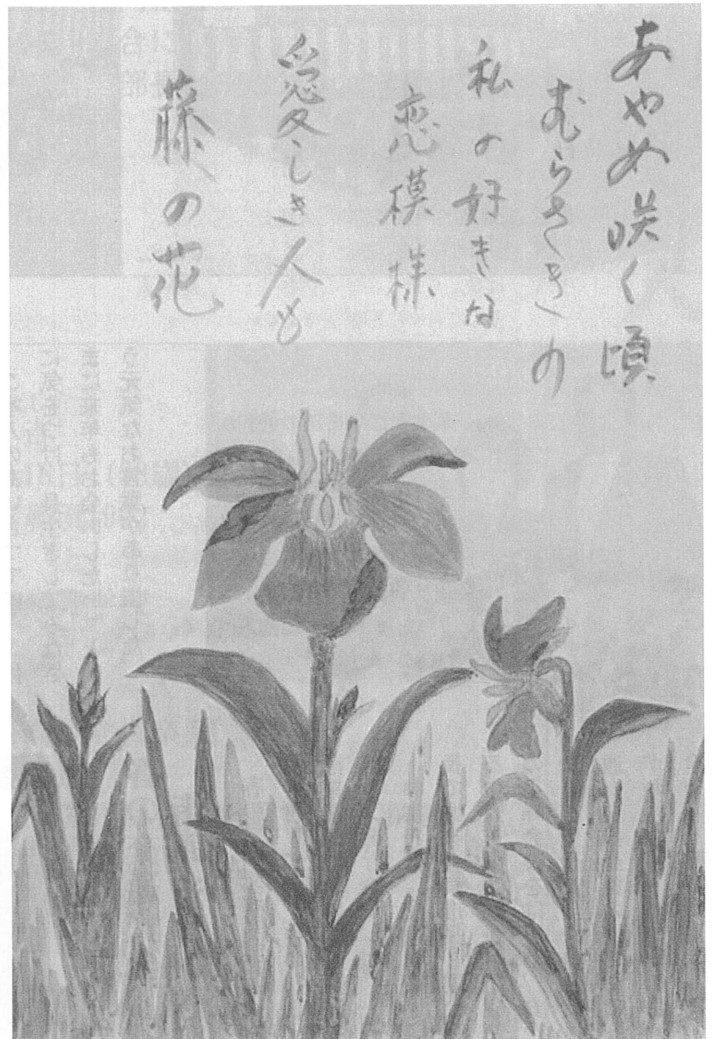 あやめ咲く頃
むらさきの
私の好きな
恋模様
愛しき人も
藤の花